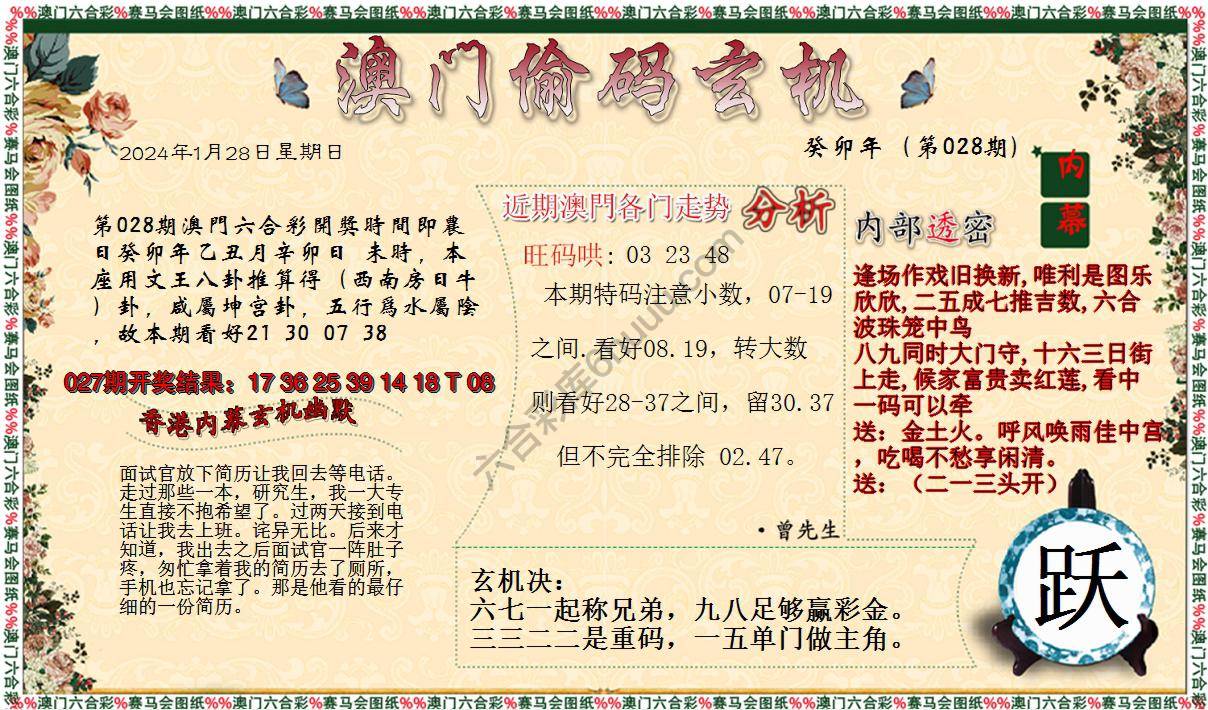 %%澳门六合彩%赛马会图纸%%澳门六合彩%赛马会图纸%%澳门六合彩%赛马会图纸%%澳门六合彩%赛马会图纸%%澳门六合彩%赛马会图纸%%澳门六合彩%赛马会图纸%%澳门六合彩%赛马会图纸
澳门偷码玄机
2024年1月28日星期日
癸卯年（第028期）
内幕
第028期澳門六合彩開獎時間即農
日癸卯年乙丑月辛卯日 未時，本
座用文王八卦推算得（西南房日牛
）卦，咸屬坤宫卦，五行爲水屬陰
，故本期看好21 30 07 38
027期开奖结果：17 36 25 39 14 18 T 08
香港内幕玄机幽默
面试官放下简历让我回去等电话。
走过那些一本，研究生，我一大专
生直接不抱希望了。过两天接到电
话让我去上班。诧异无比。后来才
知道，我出去之后面试官一阵肚子
疼，匆忙拿着我的简历去了厕所，
手机也忘记拿了。那是他看的最仔
细的一份简历。
近期澳門各门走势 分析
旺码哄: 03 23 48
本期特码注意小数，07-19
之间.看好08.19，转大数
则看好28-37之间，留30.37
但不完全排除 02.47。
·曾先生
内部透密
逢场作戏旧换新,唯利是图乐
欣欣,二五成七推吉数,六合
波珠笼中鸟
八九同时大门守,十六三日街
上走,候家富贵卖红莲,看中
一码可以牵
送：金土火。呼风唤雨佳中宫
，吃喝不愁享闲清。
送：（二一三头开）
玄机决：
六七一起称兄弟，九八足够赢彩金。
三三二二是重码，一五单门做主角。
跃